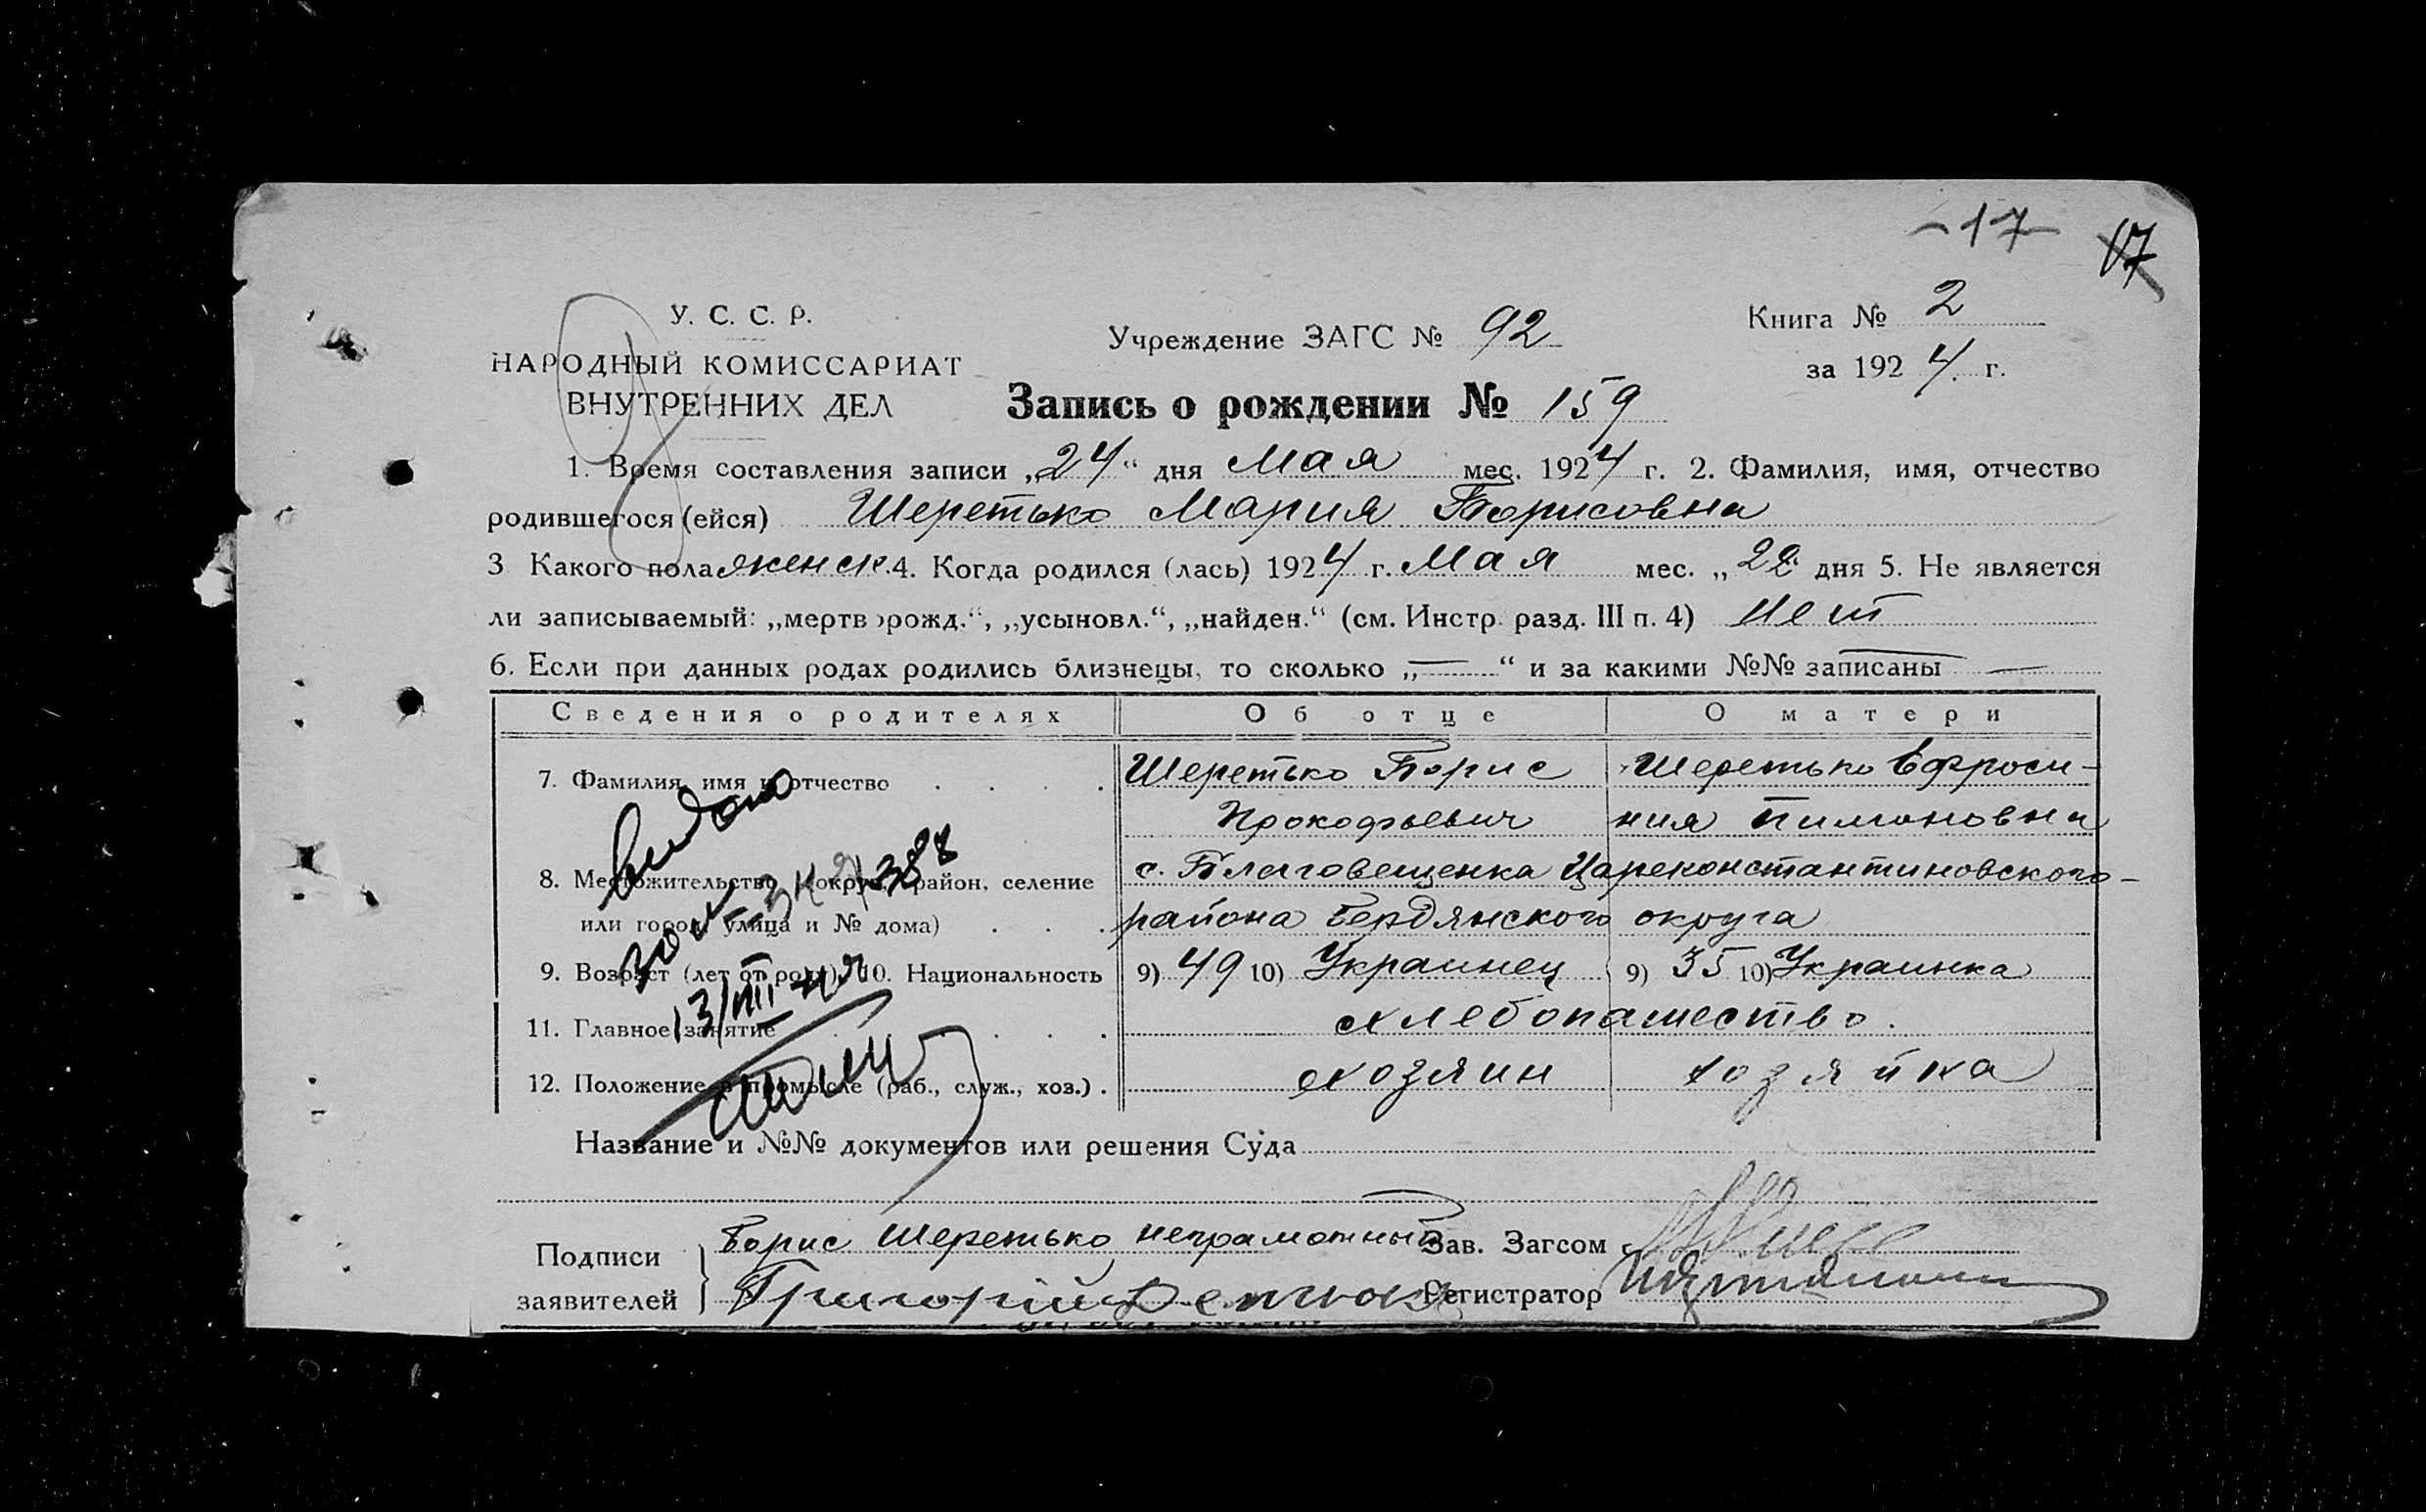 -17- 17
У. С. С. Р.
НАРОДНЫЙ КОМИССАРИАТ
ВНУТРЕННИХ ДЕЛ
Учреждение ЗАГС № 92
Книга № 2
за 1924. г.
Запись о рождении № 159
1. Время составления записи „24“ дня Мая мес. 1924 г. 2. Фамилия, имя, отчество
родившегося (ейся) Шеретько Мария Борисовна
3 Какого пола женск. 4. Когда родился (лась) 1924 г. Мая мес. „22 дня 5. Не является
ли записываемый: „мертворожд.“, „усыновл.“, „найден.“ (см. Инстр. разд. III п. 4) нет
6. Если при данных родах родились близнецы, то сколько „—“ и за какими №№ записаны —
Сведения о родителях Об отце О матери
7. Фамилия, имя и отчество . . . . Шеретько Борис Шеретько Ефроси-
Прокофьевич ния Пимоновна
8. Местожительство (округ, район, селение с. Благовещенка Цареконстантиновского
или город, улица и № дома) . . . района Бердянского округа
9. Возраст (лет от роду) 10. Национальность 9) 49 10) Украинец 9) 35 10) Украинка
11. Главное занятие . . . . . . хлебопашество.
12. Положение в промысле (раб., служ., хоз.) . хозяин хозяйка
Название и №№ документов или решения Суда
Подписи заявителей
Борис Шеретько неграмотный
Григорій
Зав. Загсом
Регистратор